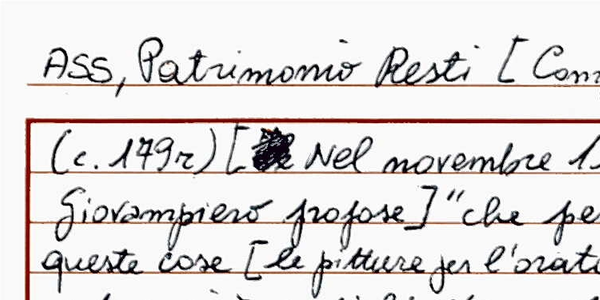 ASS, Patrimonio Resti [
(c. 179r) [ Nel novembre 1
Giovampiero propose] "che pe
queste cose [le pitture per l'orat